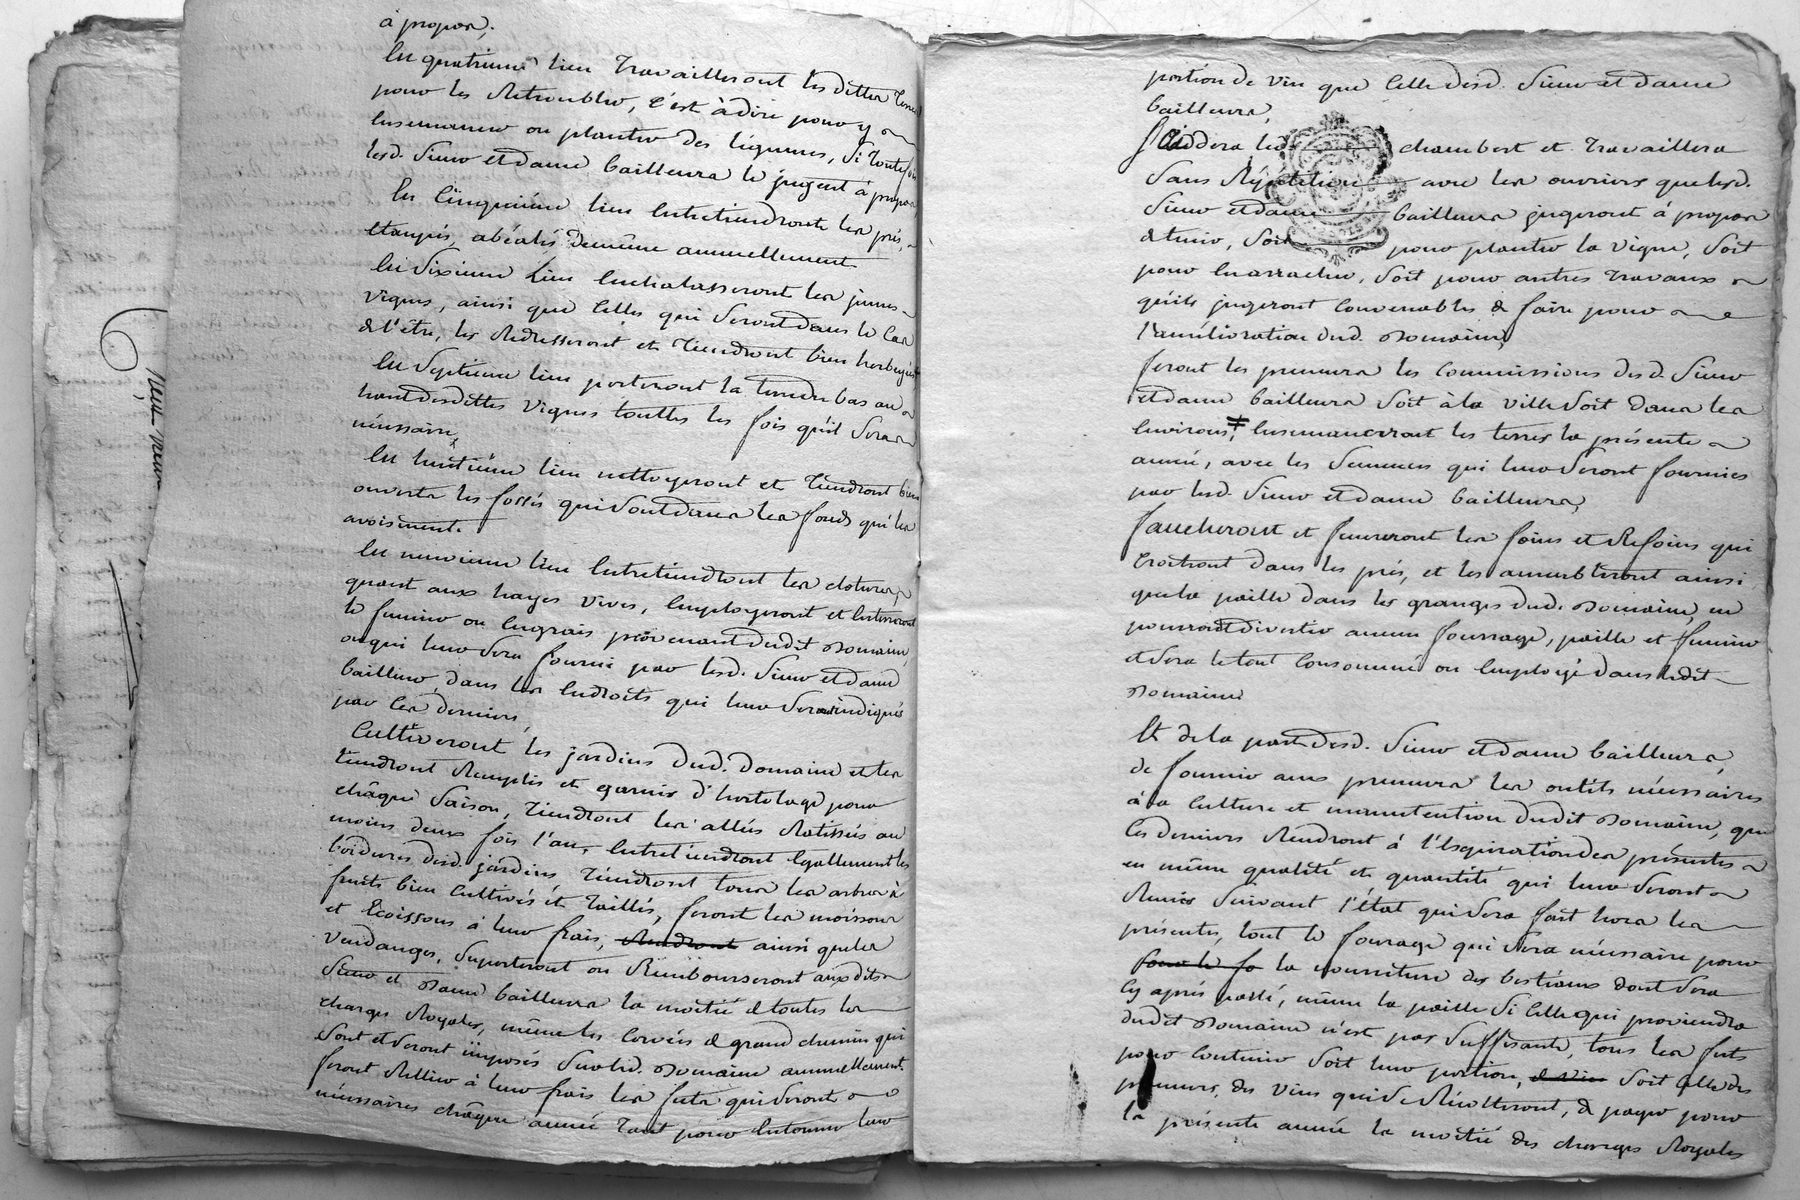 à propos,
En quatrieme lieu Travailleront lesdittes Terres
pour les Retroubler, c'est àdire pour y
ensemencer ou planter des légumes, si toutefois
lesd. Sieur et dame bailleurs le jugent à propos
En Cinquieme lieu Entretiendront les prés,
étaupés, abéalés demême annuellement
En Sixieme Lieu Enchalasseront les jeunes
vignes, ainsi que Celles qui Seront dans le Cas
de l'être, les Redresseront et Tiendront bien
En Septieme lieu porteront la terre du bas au
haut desdittes vignes touttes les fois qu'il Sera
nécessaire,
En huitième lieu nettoyeront et Tiendront bien
ouverts les fossés qui Sont dans les fonds qui les
avoisinent.
En neuvieme lieu Entretiendront les clotures,
quant aux hayes vives, Employeront et Enterreront
le fumier ou Engrais provenant dudit Domaine,
ou qui leur Sera fourni par lesd. Sieur et dame
bailleur, dans les Endroits qui leur Seront indiqués
par Ces derniers,
Cultiveront les jardins dud. Domaine et les
tiendront Remplis et garnis d'hortolage pour
châque Saison, Tiendront les allées Ratissées au
moins deux fois l'an, Entretiendront Egallement les
bordures desd. jardins Tiendront tous les arbres à
fruits bien Cultivés et Taillés, feront les moissons
et Ecoissons à leur frais, Rendront ainsi queles
vendanges, Suporteront ou Rembourseront auxdits
Sieur et Dame bailleurs la moitié de toutes les
charges Royales, même les Corvées de grand chemin qui
Sont et Seront imposés Surled. Domaine annuellement.
feront Rellier à leur frais les futs qui Seront
nécessaires châque année Tant pour Entonner leur
portion de vin que Celle desd. Sieur et dame
bailleurs,
Aidera led chambert et Travaillera
Sans Répétition avec les ouvriers que lesd.
Sieur et dame bailleurs jugeront à propos
de tenir, Soit pour planter la vigne, Soit
pour Enarracher, Soit pour autres Travaux
qu'ils jugeront Convenables de faire pour
l'amélioration dud. Domaine,
feront les preneurs les Commissions desd. Sieur
et dame bailleurs Soit à la ville Soit dans les
Environs, # Ensemenceront les terres la présente
année, avec les Semences qui leur Seront fournies
par lesd. Sieur et dame bailleurs,
faucheront et feneront les foins et Refoins qui
Croitront dans les prés, et les ameubleront ainsi
que la paille dans les granges dud. Domaine, ne
pourront divertir aucun fourrage, paille et fumier
et Sera le tout Consommé ou Employé dans ledit
Domaine
Et de la part desd. Sieur et dame bailleurs,
de fournir aux preneurs les outils nécessaires
à la Culture et manutention dudit Domaine, que
Ces derniers Rendront à l'Expiration des présentes
en même qualité et quantité qui leur Seront
Remis Suivant l'état qui Sera fait hors les
présentes, tout le fourage qui Sera nécessaire pour
pour le fo la nourriture des bestiaux dont Sera
Cy après parlé, même la paille Si Celle qui proviendra
dudit Domaine n'est pas Suffisante, tous les futs
pour Contenir Soit leur portion, de vin Soit Celle des
preneurs, des vins qui Se Récolteront, de payer pour
la présente année la moitié des charges Royales